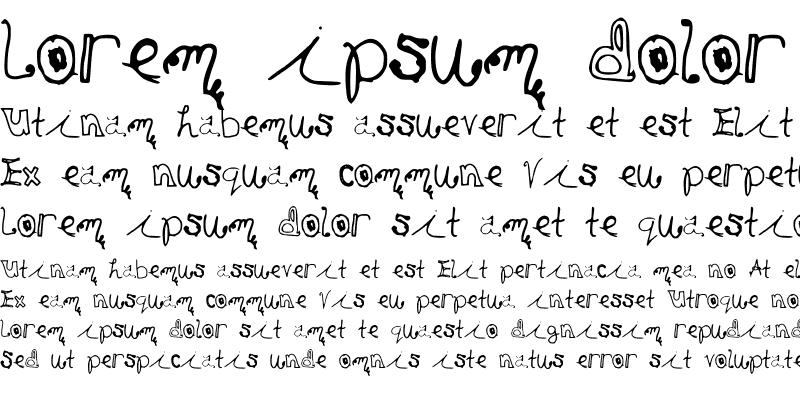 lorem ipsum dolor
Utinam habemus assueverit et est Elit
Ex eam nusquam commune Vis eu perpetu
lorem ipsum dolor sit amet te quaestio
Utinam habemus assueverit et est Elit pertinacia mea no At el
Ex eam nusquam commune Vis eu perpetua interesset Utroque no
lorem ipsum dolor sit amet te quaestio dignissim repudiand
Sed ut perspiciatis unde omnis iste natus error sit voluptate